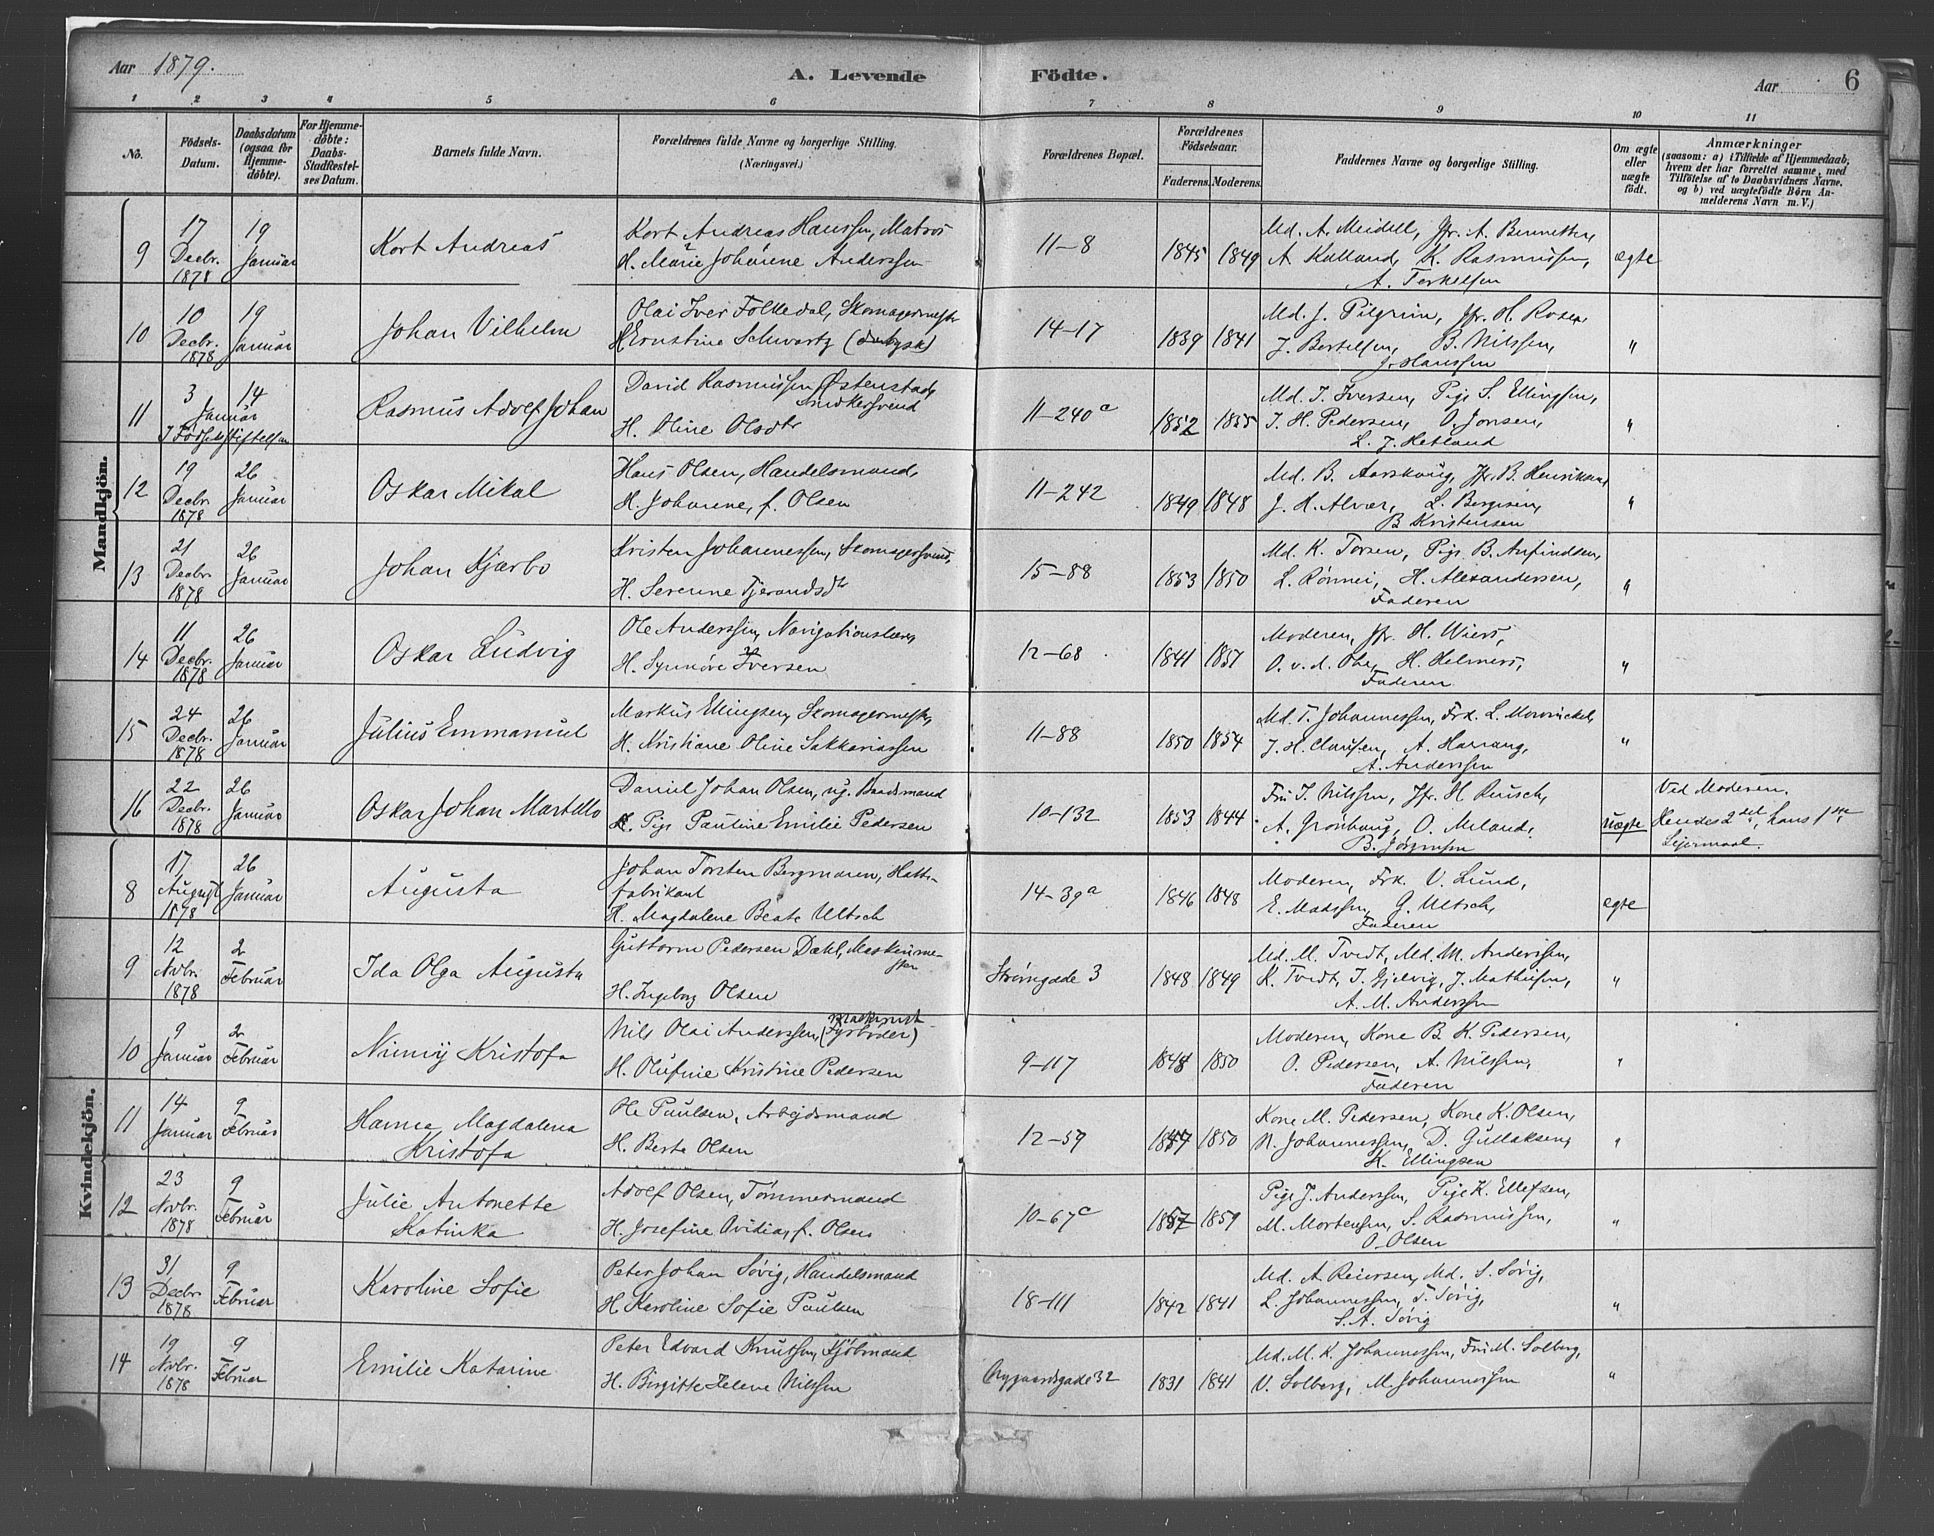 Aar 1879. A. Levende Födte. Aar 6
1 2 3 4 5 6 7 8 9 10 11
No. Födsels-Datum. Daabsdatum (ogsaa for Hjemme-döbte). For Hjemme-döbte: Daabs-Stadfæstel-ses Datum. Barnets fulde Navn. Forældrenes fulde Navne og borgerlige Stilling. (Næringsvei.) Forældrenes Bopæl. Forældrenes Födselsaar. Faderens. Moderens. Faddernes Navne og borgerlig Stilling. Om ægte eller uægte födt. Anmærkninger (saasom: a) i Tilfælde af Hjemmedaab, hvem der har forrettet samme, med Tilföielse af to Daabsvidners Navne, og b) ved uægtefödte Börn An-melderens Navn m. V.)
Mandkjön.
9 17 Decbr. 1878 19 Januar Kort Andreas Kort Andreas Hanssen, Matros
H. Marie Johanne Anderssen 11-8 1845 1849 Md. A. Meidell, Jfr. A. Bennetter,
A. Kalland, K. Rasmussen,
A. Terkelsen ægte
10 10 Decbr. 1878 19 Januar Johan Vilhelm Olai Iver Folkedal, Skomagermester
H Ernstine Schwartz 14-17 1839 1841 Md. J. Pilgrim, Jfr. H. Rosen,
J. Bertelsen, B. Nilssen,
J. Hanssen "
11 3 Januar 14 I Födselsstiftelsen Rasmus Adolf Johan David Rasmussen Østenstad,
Snedkersvend
H. Oline Olsdtr 11-240a 1852 1855 Md. T. Iversen, Pige S. Ellingsen,
T. H. Pedersen, O. Jonsen,
L. J. Hetland "
12 19 Decbr. 1878 26 Januar Oskar Mikal Hans Olsen, Handelsmand,
H. Johanne, f. Olsen 11-242 1849 1848 Md. B. Aarskoug, Jfr. B. Henriksen,
J. H. Alvær, L. Bergesen,
B Kristensen "
13 21 Decbr. 1878 26 Januar Johan Kjærbo Kristen Johannessen, Skomagersvend,
H. Serenne Tjerandsdtr 15-88 1853 1850 Md. K. Torsen, Pige B. Anfindsen,
L. Rönnei, H. Alexandersen,
Faderen "
14 11 Decbr. 1878 26 Januar Oskar Ludvig Ole Anderssen, Navigationslærer,
H. Synnöve Iversen 12-68 1841 1857 Moderen, Jfr. H. Wiers,
O. v. d. Ohe, H. Helmers,
Faderen "
15 24 Decbr. 1878 26 Januar Julius Emmanuel Markus Ellingsen, Skomagermester,
H. Kristiane Oline Sakkariassen 11-88 1850 1854 Md. T. Johannessen, Frk. L. Mowinckel,
J. H. Claussen, A. Harrang,
A. Anderssen "
16 22 Decbr. 1878 26 Januar Oskar Johan Martello Daniel Johan Olsen, ug. Baadsmand
Pige Pauline Emilie Pedersen 10-132 1853 1844 Fru T. Nilssen, Jfr. H Reusch,
A. Grönhaug, O. Meland,
B. Jörgensen uægte Ved Moderen.
Hendes 2det, hans 1ste
Lejermaal.
Kvindekjön.
8 17 August 1878 26 Januar Augusta Johan Torsten Bergmann, Hatte-
fabrikant
H. Magdalene Beate Ultsch 14-39a 1846 1848 Moderen, Frk. V. Lund,
E. Madssen, G. Ultsch,
Faderen ægte
9 12 Novbr. 1878 2 Februar Ida Olga Augusta Guttorm Pedersen Dahl, Maskinme-
ster
H. Ingeborg Olsen Strömgade 3 1848 1849 Md. M. Tvedt, Md. M. Anderssen,
K. Tvedt, T. Gjelvig, J. Mathisen,
A. M. Anderssen "
10 9 Januar 2 Februar Nicoly Kristofa Nils Olai Anderssen, (Fyrböder) Maskinist
H. Olufine Kristine Pedersen 9-117 1848 1850 Moderen, Kone B. K. Pedersen,
O. Pedersen, A. Nilssen,
Faderen "
11 14 Januar 9 Februar Hanna Magdalena
Kristofa Ole Paulsen, Arbejdsmand
H. Berta Olsen 12-59 1850 Kone M. Pedersen, Kone K. Olsen,
N. Johannessen, D. Gullaksen,
K. Ellingsen "
12 23 Novbr. 1878 9 Februar Julie Antonette
Katinka Adolf Olsen, Tömmermand
H. Josefine Ovidia, f. Olsen 10-67c 1857 1859 Pige J. Anderssen, Pige K. Ellefsen,
M. Mortensen, S. Rasmussen,
O. Olsen "
13 31 Decbr 1878 9 Februar Karoline Sofie Peter Johan Sövig, Handelsmand
H Karoline Sofie Paulsen 18-111 1842 1841 Md. A Reiersen, Md. S. Sövig,
L. Johannessen, T. Sövig,
S. A. Sövig "
14 19 Novbr. 1878 9 Februar Emilie Katarine Peter Edvard Knutsen, Sjömand
H. Birgitte Helene Nilssen Nygaardsgade 32 1831 1841 Md. M. K. Johannessen, Fru M. Solberg,
V. Solberg, M. Johannessen "